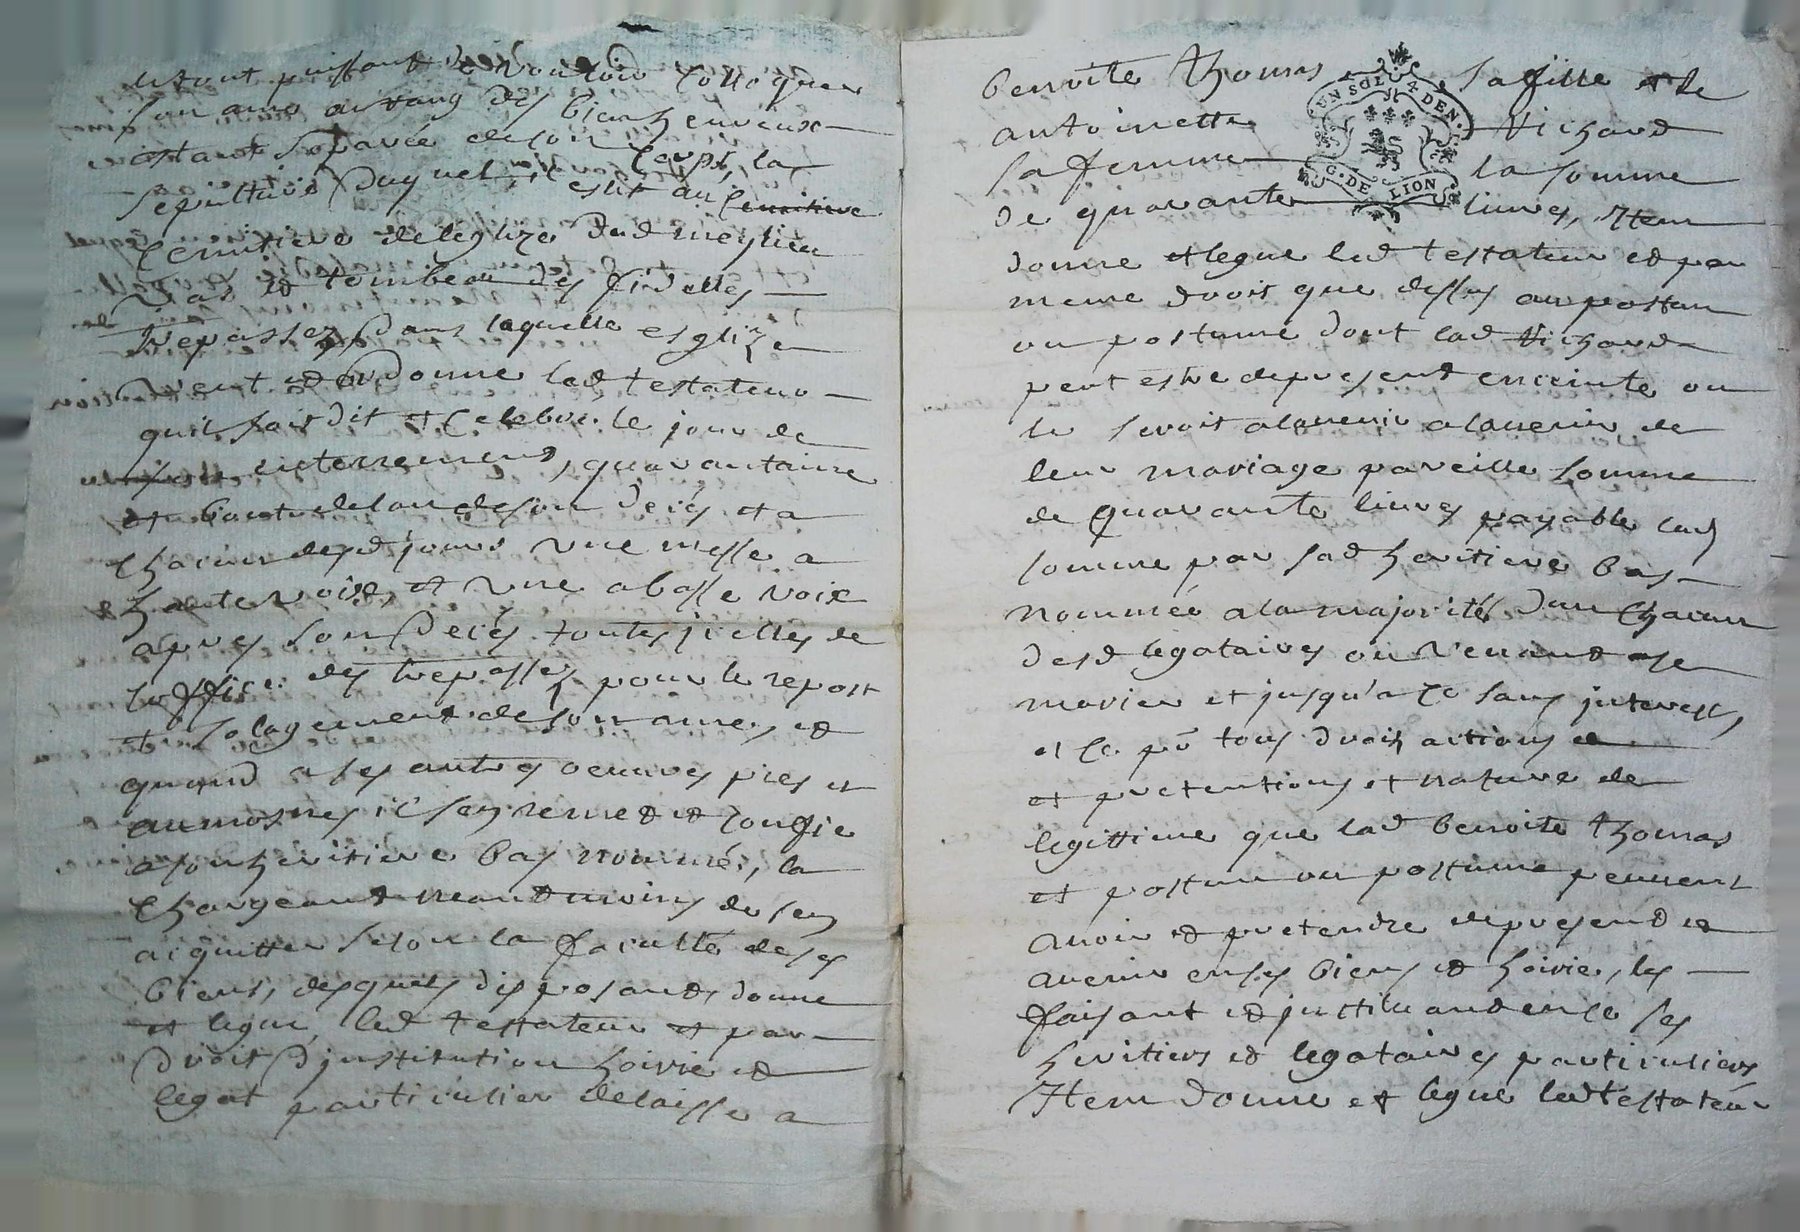 le tout puissant de vouloir colloquer
son ame au rang des bienheureux
estant separée deson corps, la
sepulture duquel il eslit au Cemitiere
Cemitiere deleglize dud meylieu
vas et tombeau des fidelles
trepassez, dans laquelle esglize
veut et ordonne led testateur
quil soit dit et celebre le jour de
son enterrement, quarantaine
et bout delan deson decés et a
chacun desd jours une messe a
haute voix, et une abasse voix
apres son decés toutes jcelles de
loffice des trepassez pour le repost
et solagement deson ame, et
quand a ses autres oeuvres pies et
aumosnes il sen remet et confie
a son heritiere bas nommé, la
chargeant neantmoins de sen
aiquitter selon la faculté deses
biens, desquels disposant, donne
et legue led testateur et par
droit djnstitution hoirie et
legat particulier delaisse a
benoite thomas sa fille et de
UN SOL 4 DEN.
antoinette Vichard
G. DE LION
sa femme la somme
de quarante livres, Item
donne et legue led testateur et par
meme droit que dessus au postum
ou postume dont lad Vichard
peut estre depresent enceinte ou
le seroit alavenir alavenir de
leur mariage pareille somme
de quarante livres payable lad
somme par sad heritiere bas
nommée a la majorité dun chacun
desd legataires ou venant ase
marier et jusqu'a ce sans jnterest,
et ce pr tous droits actions
et pretentions et nature de
legittime que lad benoite thomas
et postum ou postume peuvent
avoir et pretendre depresent et
avenir enses biens et hoirie, les
faisant et jnstituant en ce ses
heritiers et legataires particuliers
Item donne et legue led testateur